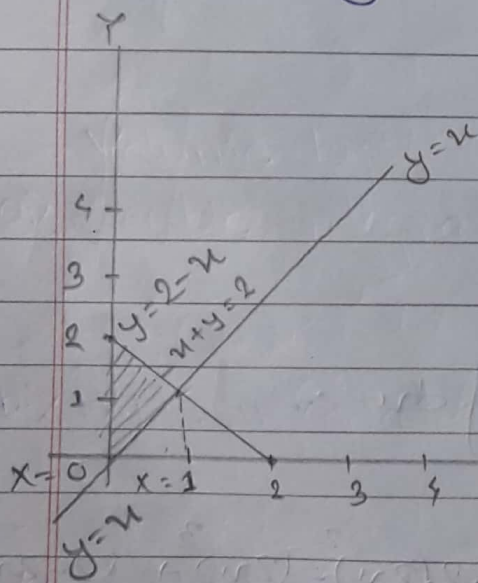 Y
y=x
4
3
y=2-x
2
x+y=2
1
x=0
x=1
2
3
4
y=x